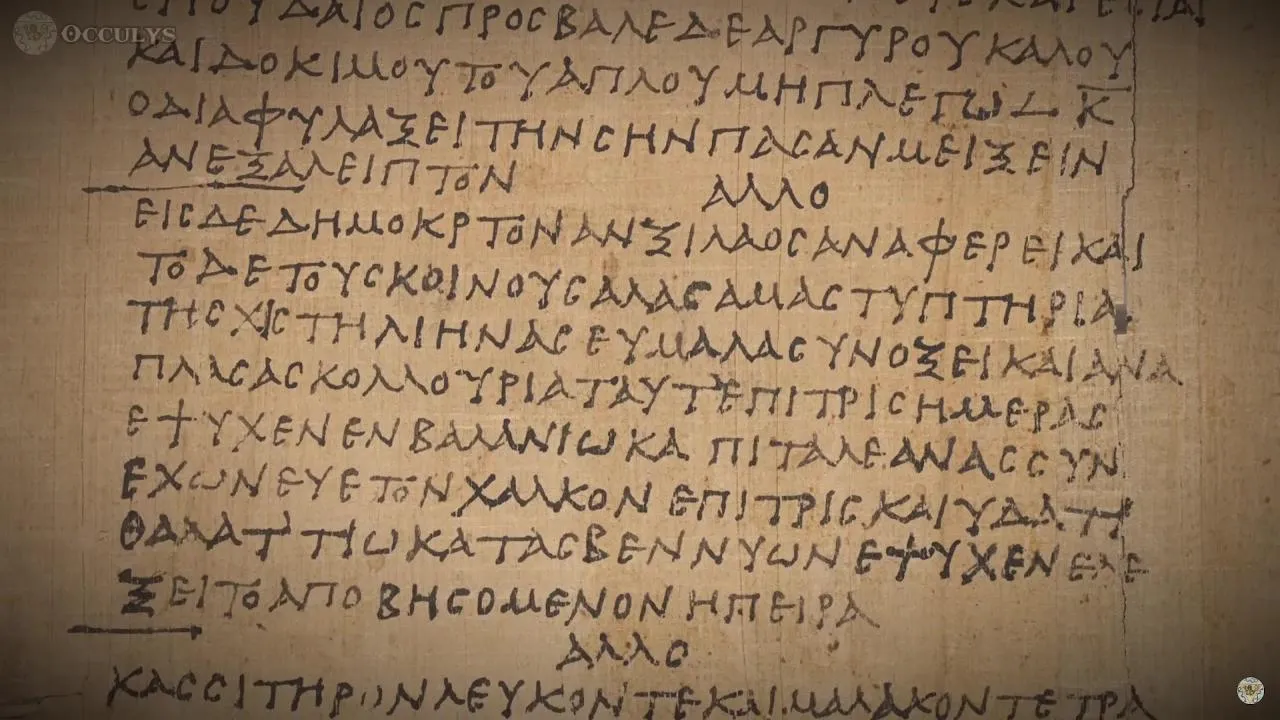 OCCULYS
ΔΑΙΟΣ ΠΡΟΣΒΑΛΕ ΔΕ ΑΡΓΥΡΟΥ ΚΑΛΟΥ
ΚΑΙ ΔΟΚΙΜΟΥ ΤΟΥ ΑΠΛΟΥ ΜΗ ΠΛΕ
Ο ΔΙΑΦΥΛΑΞΕΙ ΤΗΝ ΣΗΝ ΠΑΣΑΝ ΜΕΙΞΕΙΝ
ΑΝΕΞΑΛΕΙΠΤΟΝ
ΑΛΛΟ
ΕΙΣ ΔΕ ΔΗΜΟΚΡΤΟΝ ΑΝΞΙΛΑΟΣ ΑΝΑΦΕΡΕΙ ΚΑΙ
ΤΟΔΕ ΤΟΥΣ ΚΟΙΝΟΥΣ ΑΛΑΣ ΑΜΑ ΣΤΥΠΤΗΡΙΑ
ΤΗ ΣΧΙΣΤΗ ΛΙΗΝΑΣ ΕΥ ΜΑΛΑ ΣΥΝ ΟΞΕΙ ΚΑΙ ΑΝΑ
ΠΛΑΣΑΣ ΚΟΛΛΟΥΡΙΑ ΤΑΥΤ ΕΠΙ ΤΡΙΣ ΗΜΕΡΑΣ
ΕΨΥΧΕΝ ΕΝ ΒΑΛΑΝΙΩ ΚΑΠΙΤΑ ΛΕΑΝΑΣ ΣΥΝ
ΕΧΩΝΕΥΕ ΤΟΝ ΧΑΛΚΟΝ ΕΠΙ ΤΡΙΣ ΚΑΙ ΥΔΑΤΙ
ΘΑΛΑΤΤΙΩ ΚΑΤΑΣΒΕΝΝΥΩΝ ΕΨΥΧΕΝ ΕΛΕ
ΞΕΙ ΤΟ ΑΠΟΒΗΣΟΜΕΝΟΝ Η ΠΕΙΡΑ
ΑΛΛΟ
ΚΑΣΣΙΤΗΡΟΝ ΛΕΥΚΟΝ ΤΕ ΚΑΙ ΜΑΛΑΚΟΝ ΤΕΤΡΑ